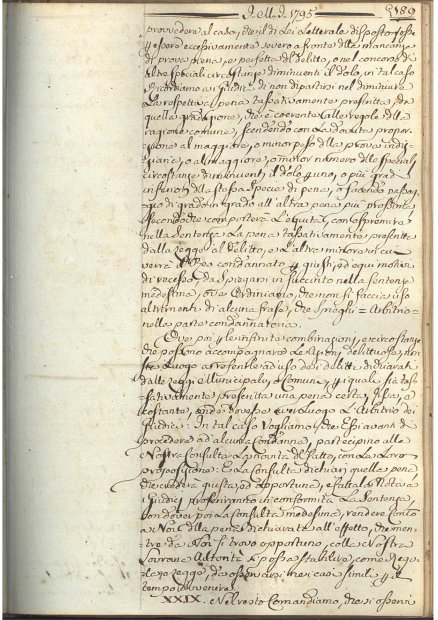 J. M. J. 1795 189
provvedera al caso, che il di Lei Letterale disposto fosse
essere eccessivamente severo a fronte della mancanza
di prova piena, e perfetta del delitto, o nel concorso di
altre speciali circostanze diminuenti il dolo, in tal caso
ricordiamo ai Giudici di non dipartirsi nel diminuire
La rispettiva pena tassativamente prescritta, da
quella gradazione, che è coerente alle regole della
ragione comune, scendendo con La dovuta propor
zione al maggiore, o minor peso della prova indi
ziaria, o al maggiore, o minor numero delle speciali
circostanze diminuenti il dolo, uno, o più gradi
inferiori della stessa specie di pena, o facendo passag
gio di grado in grado all'altra pena più prossima
secondo che comporterà L'equità, con esprimere
nella Sentenza La pena tassativamente prescritta
dalla Legge al delitto, e L'altra minore in cui
verrà il Reo condannato giusti, ed equi motivi
di recesso, da spiegarsi in succinto nella sentenza
medesima, ove Ordiniamo, che non si faccia uso
altrimenti di alcuna frase, che spieghi = Arbitrio =
nella parte condannatoria.
Ove poi infinite combinazioni, e circostanze
che possono accompagnare Le Azioni delittuose, non
Luogo a prescrivere ad uso dei delitti dichiarati
dalle Leggi Municipali, o Comuni, quali sia tas
sativamente prescritta una pena certa, fissa, e
costante, onde dovesse aver Luogo L'Arbitrio dei
Giudici: In tal caso Vogliamo, che Essi avanti di
procedere ad alcuna Condanna, partecipino alla
Nostra Consulta La novità del fatto, con La Loro
proposizione: E La Consulta dichiari quella pena
che crederà giusta, ed opportuna, e fattala Nota ai
Giudici proferiranno in conformità La Sentenza,
con dover poi La Consulta medesima rendere Conto
a Noi della pena dichiarata all'effetto, che men
tre da Noi si trovi opportuno, colla Nostra
Sovrana Autorità si possa stabilire, come Rego
la, e Legge, da osservarsi nei casi simili
tempo avvenire.
XXIX. Nel resto Comandiamo, che si osservi